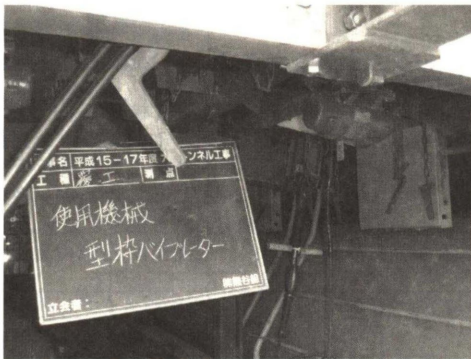 工事名 平成15-17年度 トンネル工事
工種 覆工 測点
使用機械
型枠バイブレーター
立会者: